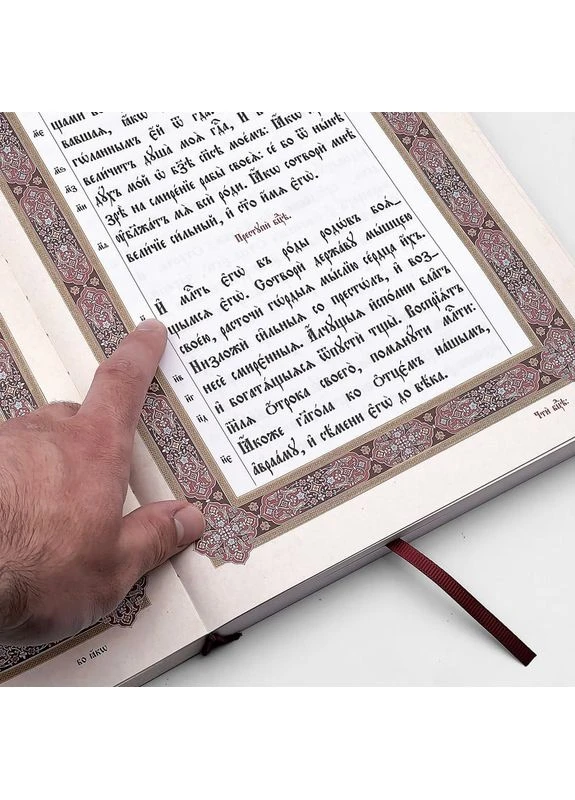 цами во
вавшаѧ, ꙗкѡ
гѡланнымъ є҆й ѿ гдⷭ҇а, И
величитъ дꙋша̀ моѧ̀ гдⷭ҇а, И҆
дꙋхъ мо́й ѡ҆ бз҃ѣ сп҃сѣ мое́мъ: Ꙗ҆́кѡ
зрѣ̀ на смире́нїе рабы̀ своеѧ̀: се́ бо ѿ ны́нѣ
ᲂу҆блажа́тъ мѧ̀ всѝ ро́ди. Ꙗ҆́кѡ сотворѝ мнѣ̀
вели́чїе си́льный, и҆ ст҃о и҆́мѧ є҆гѡ̀.
Престꙋпѝ
И҆ млⷭ҇ть є҆гѡ̀ въ ро́ды родѡ́въ боѧ-
щымсѧ є҆гѡ̀. Сотворѝ держа́вꙋ мы́шцею
свое́ю, расточѝ гѡ́рдыѧ мы́слїю се́рдца и҆́хъ.
Низложѝ си́льныѧ со престѡ́лъ, и҆ воз-
несѐ смирє́нныѧ. А҆́лчꙋщыѧ и҆спо́лни бла̑гъ
и҆ богатѧ́щыѧсѧ ѿпꙋстѝ тщы̀. Воспрїѧ́тъ
і҆и҃лѧ ѻ҆́трока своего̀, помѧнꙋ́ти млⷭ҇ти:
Ꙗ҆́коже глаго́ла ко ѻ҆тцє́мъ на́шымъ,
а҆враа́мꙋ, и҆ сѣ́мени є҆гѡ̀ до вѣ́ка.
во ꙗ҆́кѡ